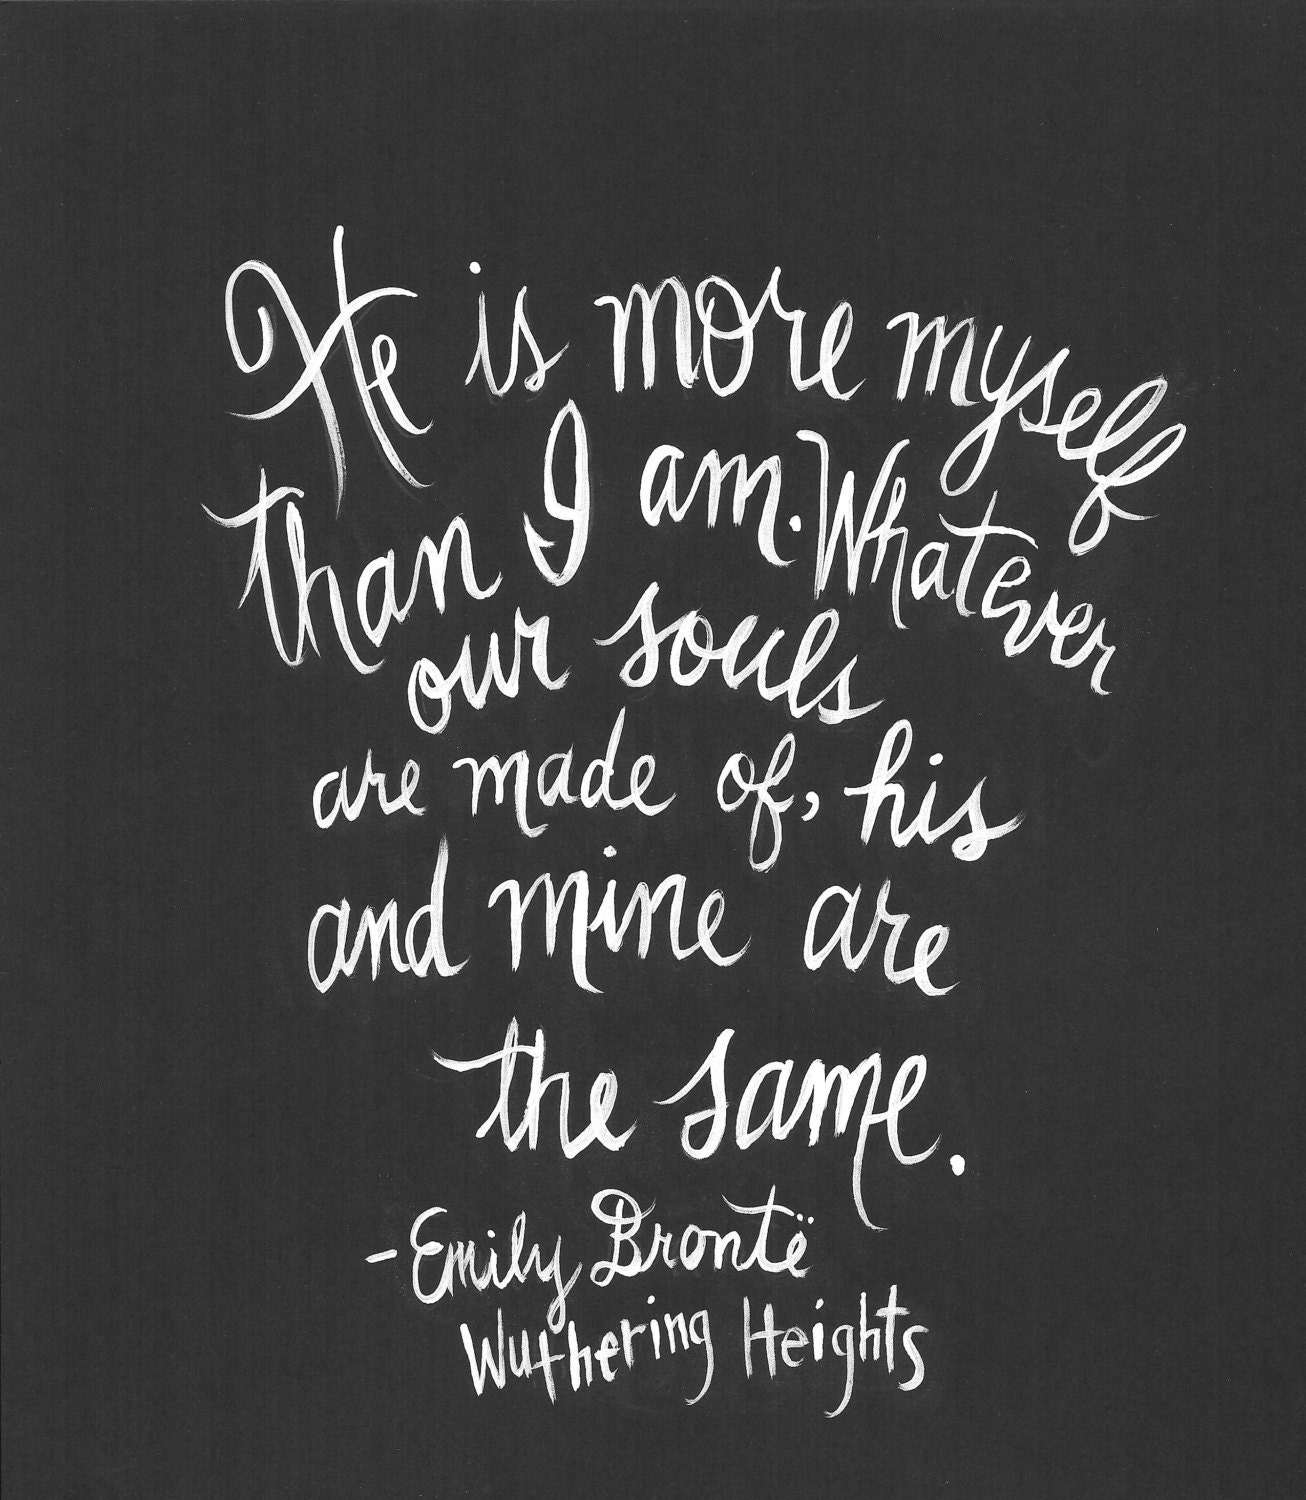 He is more myself
than I am. Whatever
our souls
are made of, his
and mine are
the same.
- Emily Brontë
Wuthering Heights